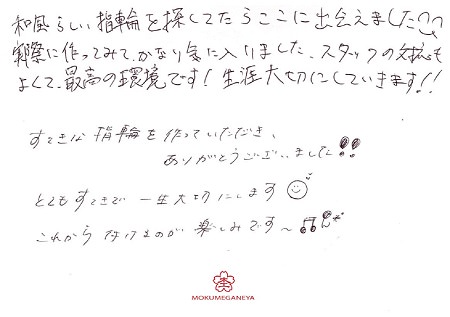 和風らしい指輪を探してたらここに出会えました
実際に作ってみて、かなり気に入りました、スタッフの対応も
よくて、最高の環境です！生涯大切にしていきます!!
すてきな指輪を作っていただき、
ありがとうございました!!
とてもすてきで一生大切にします
これから付けるのが楽しみです〜
MOKUMEGANEYA